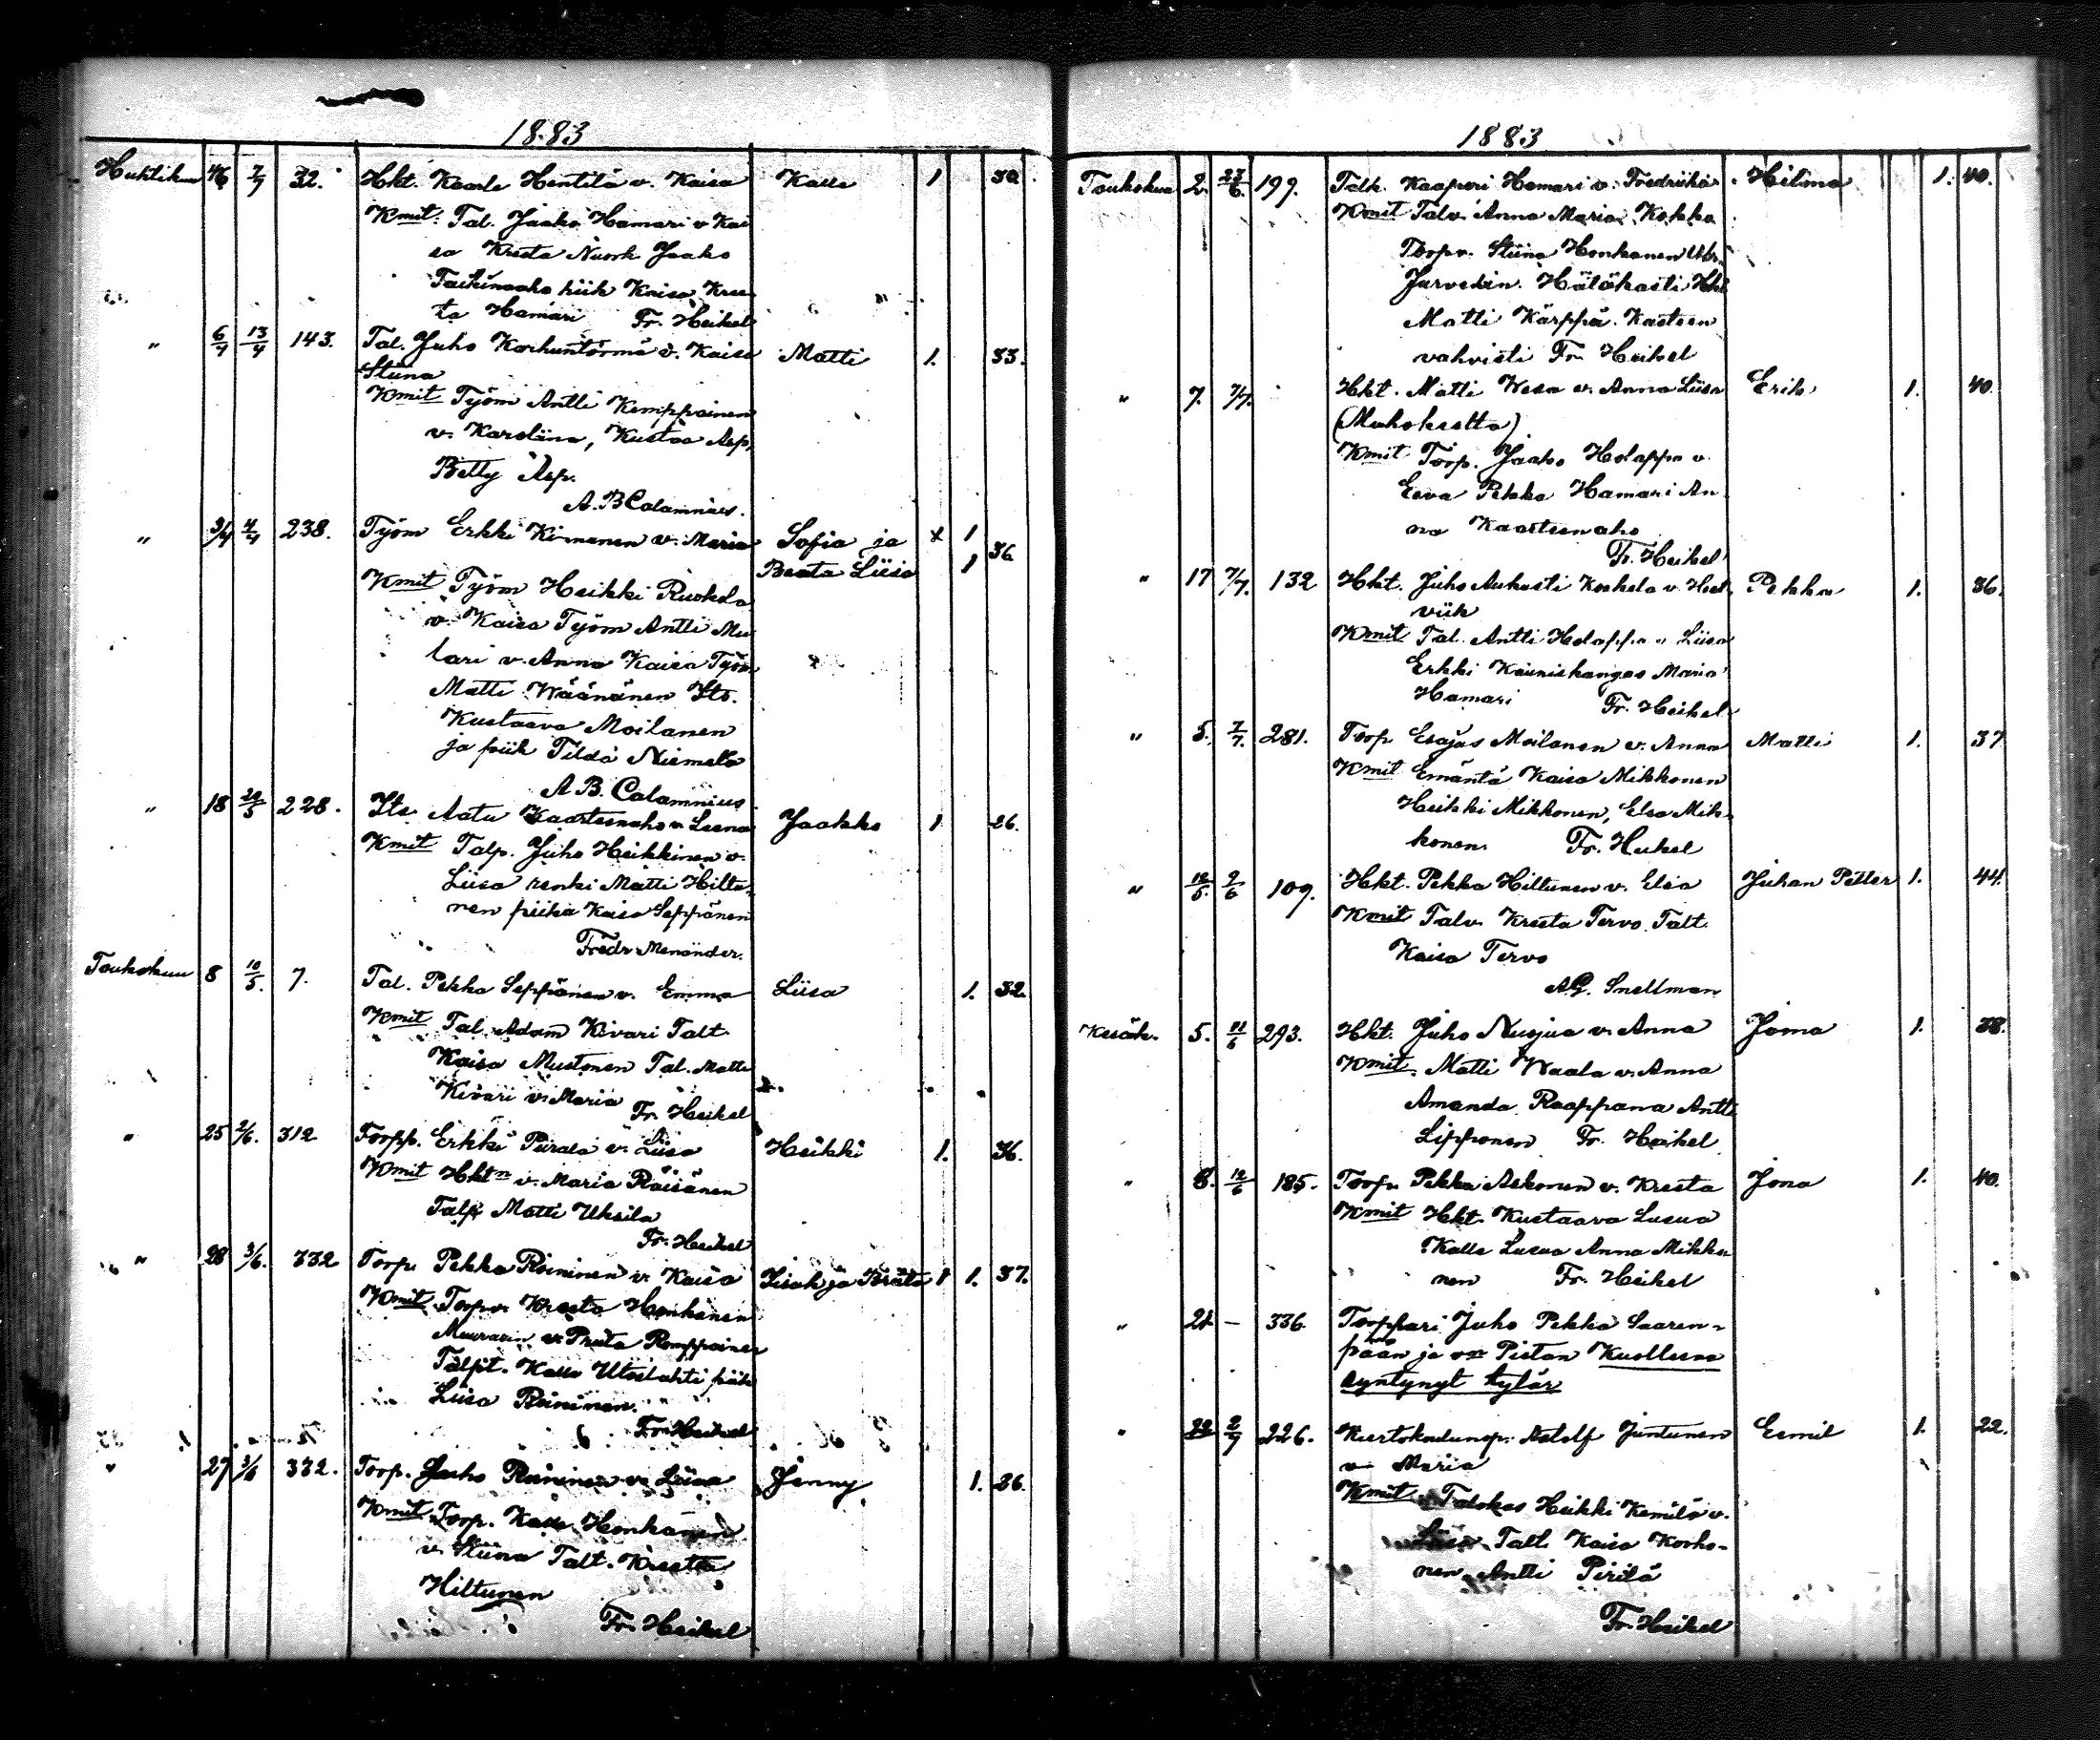 1883
Huhtikuu 4/6 7/7 32. Hkt. Kaarle Hentilä v. Kaisa Kalle 1 30.
Kmit. Tal. Jaako Hamari v Kai
sa Kreeta Nuork Jaako
Taikinaaho piik Kaisa Kree
ta Hamari Fr. Heikel
" 6/4 13/4 143. Tal. Juho Karhuntörmä v. Kaisa Matti 1. 33.
Stiina
Kmit Työm Antti Kemppainen
v. Karoliina, Kustaa Asp,
Betty Asp.
A. B Calamnius.
" 3/4 4/4 238. Työm Erkki Kinnunen v. Maria Sofia ja x 1
Beata Liisa 1 36
Kmit Työm Heikki Ruokola
v. Kaisa Työm Antti Mu
lari v. Anna Kaisa Työm
Matti Wäänänen Its.
Kustaava Moilanen
ja piik Tilda Niemelä
A B. Calamnius
" 18 20/5 228. Its Aatu Kaarteenaho v. Leena Jaakko 1 26.
Kmit Talp. Juho Heikkinen v.
Liisa renki Matti Hiltu-
nen piika Kaisa Seppänen
Fredr Menander.
Toukokuu 8 10/5. 7. Tal. Pekka Seppänen v. Emma Liisa 1. 32.
Kmit Tal. Adam Kivari Talt.
Kaisa Mustonen Tal. Matti
Kivari v. Maria Fr. Heikel
" 25 2/6. 312 Torpp. Erkki Piirala v. Liisa Heikki 1. 36.
Kmit Hktn v. Maria Räisänen
Talp Matti Uksila
Fr. Heikel
" 28 3/6. 332 Torp. Pekka Roininen v. Kaisa Iisak ja Briita 1 1. 37.
Kmit Torpv. Kreeta Honkanen
Muurarin v. Priita Romppainen
Talpt. Kalle Utoslahti piik
Liisa Roininen.
Fr. Heikel
" 27 3/6 332. Torp. Juho Roininen v. Liisa Jenny 1. 26.
Kmit Torp. Kalle Honkanen
v. Stiina Talt. Kreeta
Hiltunen
Fr. Heikel
1883
Toukokuu 2. 23/6. 199. Talk. Kaaperi Hamari v. Fredriika Hilma 1. 40.
Kmit Talv. Anna Maria Kokko
Torpv. Stiina Honkanen
Jurvelin. Hätäkasti Hkt
Matti Kärppä. Kasteen
vahvisti Fr. Heikel
" 7. 7/7. Hkt. Matti Wesa v. Anna Liisa Erik 1. 40.
(Muhokselta)
Kmit Torp. Jaako Holappa v.
Eeva Pekka Hamari An
na Kaarteenaho
Fr. Heikel
" 17 7/7. 132 Hkt. Juho Aukusti Koskela v. Hed- Pekka 1. 36.
viik
Kmit Tal. Antti Holappa v Liisa
Erkki Kauniskangas Maria
Hamari Fr. Heikel
" 5. 7/7. 281. Torp Esajas Moilanen v. Anna Matti 1. 37
Kmit Emäntä Kaisa Mikkonen
Heikki Mikkonen, Elsa Mik-
konen. Fr. Heikel
" 12/5. 2/6 109. Hkt. Pekka Hiltunen v. Elsa Juhan Petter 1. 44.
Kmit Talv. Kreeta Tervo Talt.
Kaisa Tervo
A G. Snellman
Kesäk. 5. 11/6 293. Hkt. Juho Nuojua v. Anna Joma 1. 28.
Kmit. Matti Waala v. Anna
Amanda Raappana Antti
Lipponen Fr. Heikel
" 8. 12/6 185. Torp. Pekka Askonen v. Kreeta Jona 1. 40.
Kmit Hkt. Kustaava Lusua
Kalle Lusua Anna Mikko
nen Fr. Heikel
" 21 — 336. Torppari Juho Pekka Saaren-
pään ja von Pietan Kuolleena
syntynyt tytär
" 22 2/7 226. Kiertokoulunop. Adolf Juntunen Eemil 1. 22.
v. Maria
Kmit Talokas Heikki Kemilä v.
Liisa Talt. Kaisa Korho-
nen Antti Pirilä
Fr. Heikel